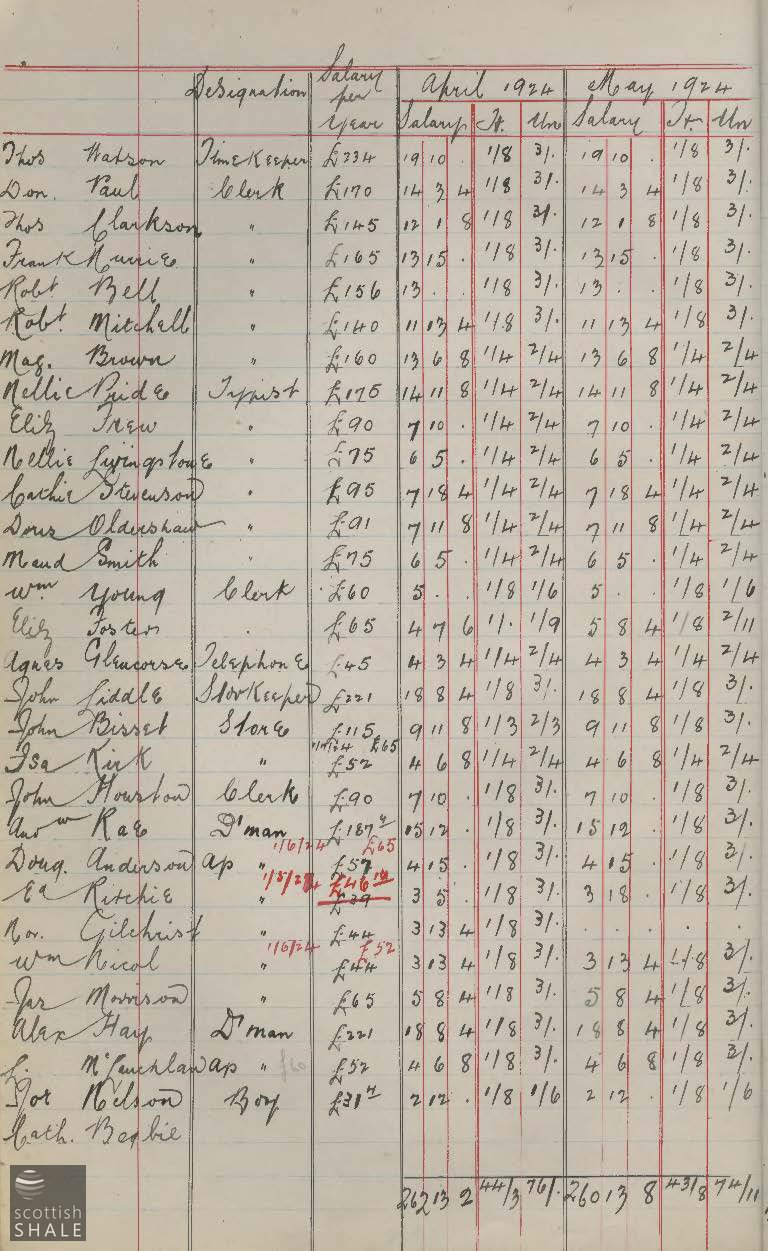 Designation Salary per Year April 1924 May 1924
Salary H. Un Salary H. Un
Thos Watson Timekeeper £234 19 10 . 1/8 3/. 19 10 . 1/8 3/.
Don. Paul Clerk £170 14 3 4 1/8 3/. 14 3 4 1/8 3/.
Thos Clarkson " £145 12 1 8 1/8 3/. 12 1 8 1/8 3/.
Frank Murrie " £165 13 15 . 1/8 3/. 13 15 . 1/8 3/.
Robt Bell " £156 13 . . 1/8 3/. 13 . . 1/8 3/.
Robt. Mitchell " £140 11 13 4 1/8 3/. 11 13 4 1/8 3/.
Mag. Brown " £160 13 6 8 1/4 2/4 13 6 8 1/4 2/4
Nellie Pride Typist £175 14 11 8 1/4 2/4 14 11 8 1/4 2/4
Eliz Trew " £90 7 10 . 1/4 2/4 7 10 . 1/4 2/4
Nellie Livingstone " £75 6 5 . 1/4 2/4 6 5 . 1/4 2/4
Cathie Stevenson " £95 7 18 4 1/4 2/4 7 18 4 1/4 2/4
Doris Oldershaw " £91 7 11 8 1/4 2/4 7 11 8 1/4 2/4
Maud Smith " £75 6 5 . 1/4 2/4 6 5 . 1/4 2/4
Wm Young Clerk £60 5 . . 1/8 1/6 5 . . 1/8 1/6
Eliz Foster . £65 4 7 6 1/. 1/9 5 8 4 1/8 2/11
Agnes Glencorse Telephone £45 4 3 4 1/4 2/4 4 3 4 1/4 2/4
John Liddle Storkeeper £221 18 8 4 1/8 3/. 18 8 4 1/8 3/.
John Bisset Store £115 9 11 8 1/3 2/3 9 11 8 1/8 3/.
£65
Isa Kirk " £52 4 6 8 1/4 2/4 4 6 8 1/4 2/4
John Houston Clerk £90 7 10 . 1/8 3/. 7 10 . 1/8 3/.
Andw Rae D'man £187 4 15 12 . 1/8 3/. 15 12 . 1/8 3/.
1/6/24 £65
Doug. Anderson Ap " £57 4 15 . 1/8 3/. 4 15 . 1/8 3/.
1/5/24 £46 16
Ed Ritchie " £39 3 5 . 1/8 3/. 3 18 . 1/8 3/.
Nor. Gilchrist " £44 3 13 4 1/8 3/. . . . . .
1/6/24 £52
Wm Nicol " £44 3 13 4 1/8 3/. 3 13 4 1/8 3/.
Jas Morrison " £65 5 8 4 1/8 3/. 5 8 4 1/8 3/.
Alex Hay D'man £221 18 8 4 1/8 3/. 18 8 4 1/8 3/.
L. McLauchlan Ap " £52 4 6 8 1/8 3/. 4 6 8 1/8 3/.
Jos Nelson Boy £31 4 2 12 . 1/8 1/6 2 12 . 1/8 1/6
Cath. Begbie
262 13 2 44/3 76/. 260 13 8 43/8 74/11
scottish
SHALE